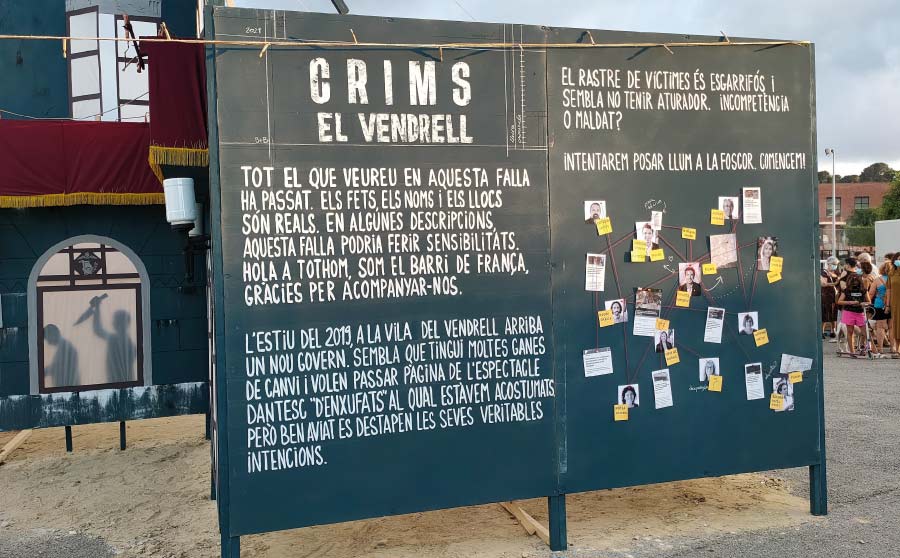 2021
CRIMS
EL VENDRELL
TOT EL QUE VEUREU EN AQUESTA FALLA
HA PASSAT. ELS FETS, ELS NOMS I ELS LLOCS
SÓN REALS. EN ALGUNES DESCRIPCIONS,
AQUESTA FALLA PODRIA FERIR SENSIBILITATS.
HOLA A TOTHOM, SOM EL BARRI DE FRANÇA,
GRÀCIES PER ACOMPANYAR-NOS.
L'ESTIU DEL 2019, A LA VILA DEL VENDRELL ARRIBA
UN NOU GOVERN. SEMBLA QUE TINGUI MOLTES GANES
DE CANVI I VOLEN PASSAR PÀGINA DE L'ESPECTACLE
DANTESC "D'ENXUFATS" AL QUAL ESTÀVEM ACOSTUMATS,
PERÒ BEN AVIAT ES DESTAPEN LES SEVES VERITABLES
INTENCIONS.
EL RASTRE DE VÍCTIMES ÉS ESGARRIFÓS I
SEMBLA NO TENIR ATURADOR. INCOMPETÈNCIA
O MALDAT?
INTENTAREM POSAR LLUM A LA FOSCOR. COMENCEM!